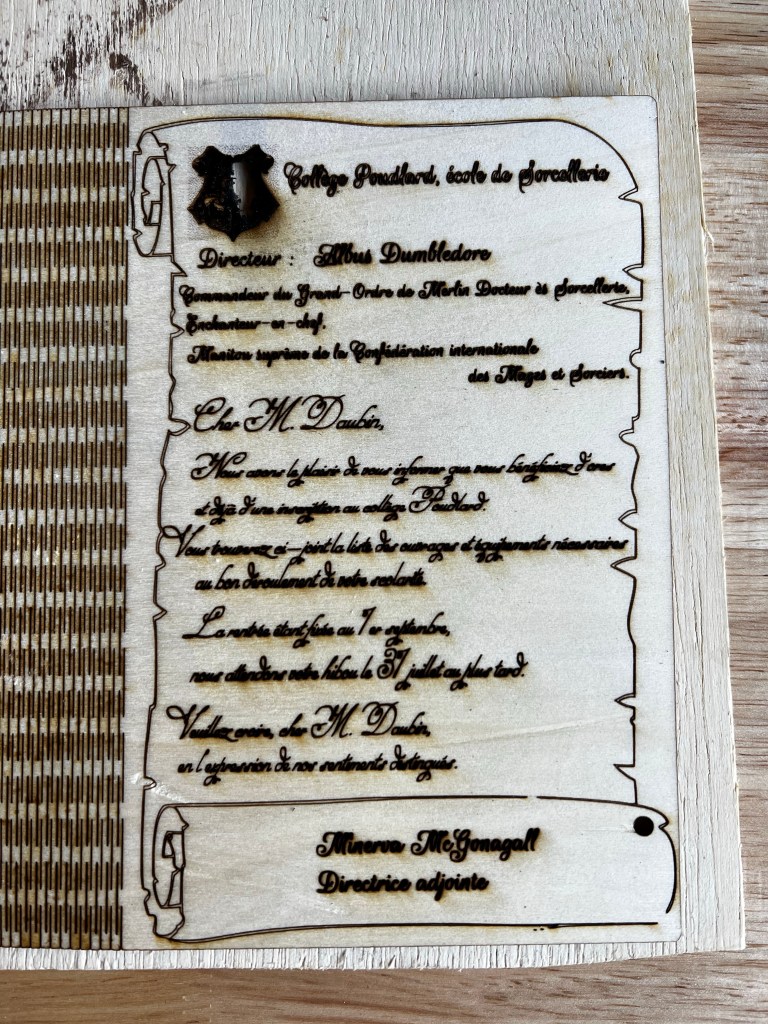 Collège Poudlard, école de Sorcellerie
Directeur : Albus Dumbledore
Commandeur du Grand-Ordre de Merlin Docteur ès Sorcellerie,
Enchanteur-en-chef,
Manitou suprème de la Confédération internationale
des Mages et Sorciers.
Cher M. Daubin,
Nous avons le plaisir de vous informer que vous bénéficiez d'ores
et déjà d'une inscription au collège Poudlard.
Vous trouverez ci-joint la liste des ouvrages et équipements nécessaires
au bon déroulement de votre scolarité.
La rentrée étant fixée au 1er septembre,
nous attendons votre hibou le 31 juillet au plus tard.
Veuillez croire, cher M. Daubin,
en l'expression de nos sentiments distingués.
Minerva McGonagall
Directrice adjointe